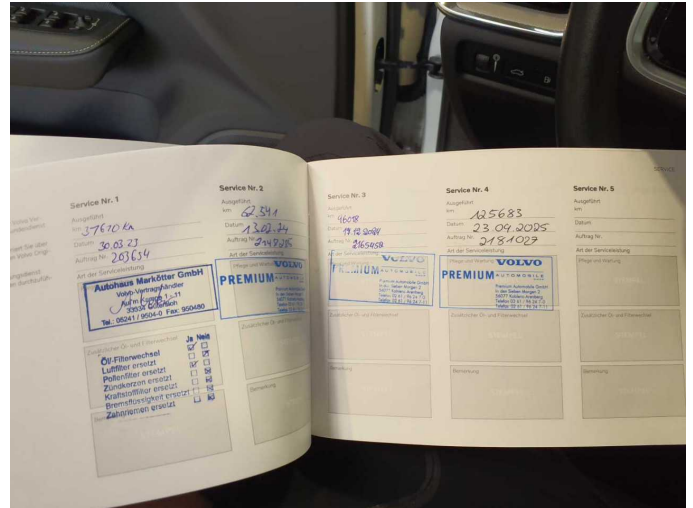 SERVICE
Service Nr. 1
Ausgeführt
km 37670 Km
Datum 30.03.23
Auftrag Nr. 203654
Art der Serviceleistung
Autohaus Markötter GmbH
Volvo-Vertragshändler
33334 Gütersloh
Tel.: 05241 / 9504-0 Fax: 950480
Zusätzlicher Öl- und Filterwechsel
Ja Nein
Öl/-Filterwechsel
Luftfilter ersetzt
Pollenfilter ersetzt
Zündkerzen ersetzt
Kraftstofffilter ersetzt
Bremsflüssigkeit ersetzt
Zahnriemen ersetzt
Service Nr. 2
Ausgeführt
km 62.341
Datum 13.02.24
Auftrag Nr.
Art der Serviceleistung
Pflege und Wartung
VOLVO
PREMIUM AUTOMOBILE
Zusätzlicher Öl- und Filterwechsel
Bemerkung
Service Nr. 3
Ausgeführt
km 96018
Datum 19.12.2024
Auftrag Nr. 2165458
Art der Serviceleistung
VOLVO
PREMIUM AUTOMOBILE
Premium Automobile GmbH
In den Sieben Morgen 2
56077 Koblenz-Arenberg
Zusätzlicher Öl- und Filterwechsel
Bemerkung
Service Nr. 4
Ausgeführt
km 125683
Datum 23.04.2025
Auftrag Nr. 2181027
Art der Serviceleistung
Pflege und Wartung
VOLVO
PREMIUM AUTOMOBILE
Premium Automobile GmbH
In den Sieben Morgen 2
56077 Koblenz-Arenberg
Zusätzlicher Öl- und Filterwechsel
Bemerkung
Service Nr. 5
Ausgeführt
km
Datum
Auftrag Nr.
Art der Serviceleistung
Pflege und Wartung
Zusätzlicher Öl- und Filterwechsel
Bemerkung